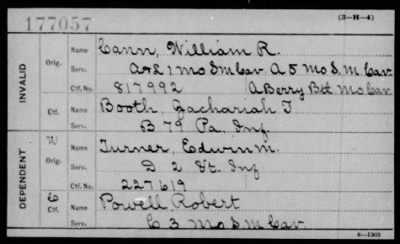 177057
(3-H-4)
INVALID
Orig.
Name Cann, William R.
Serv. A & L 1 Mo S M Cav. A 5 Mo S. M. Cav.
Ctf. No. 817992 A Berry Bet Mo Cav
Ctf.
Name Booth, Zachariah T.
Serv. B 79 Pa. Inf
DEPENDENT
W
Orig.
Name Turner, Edwin M.
Serv. D 2 Vt. Inf
Ctf. No. 227619
Ctf.
Name Powell Robert
Serv. C 3 Mo S M Cav
6-1903